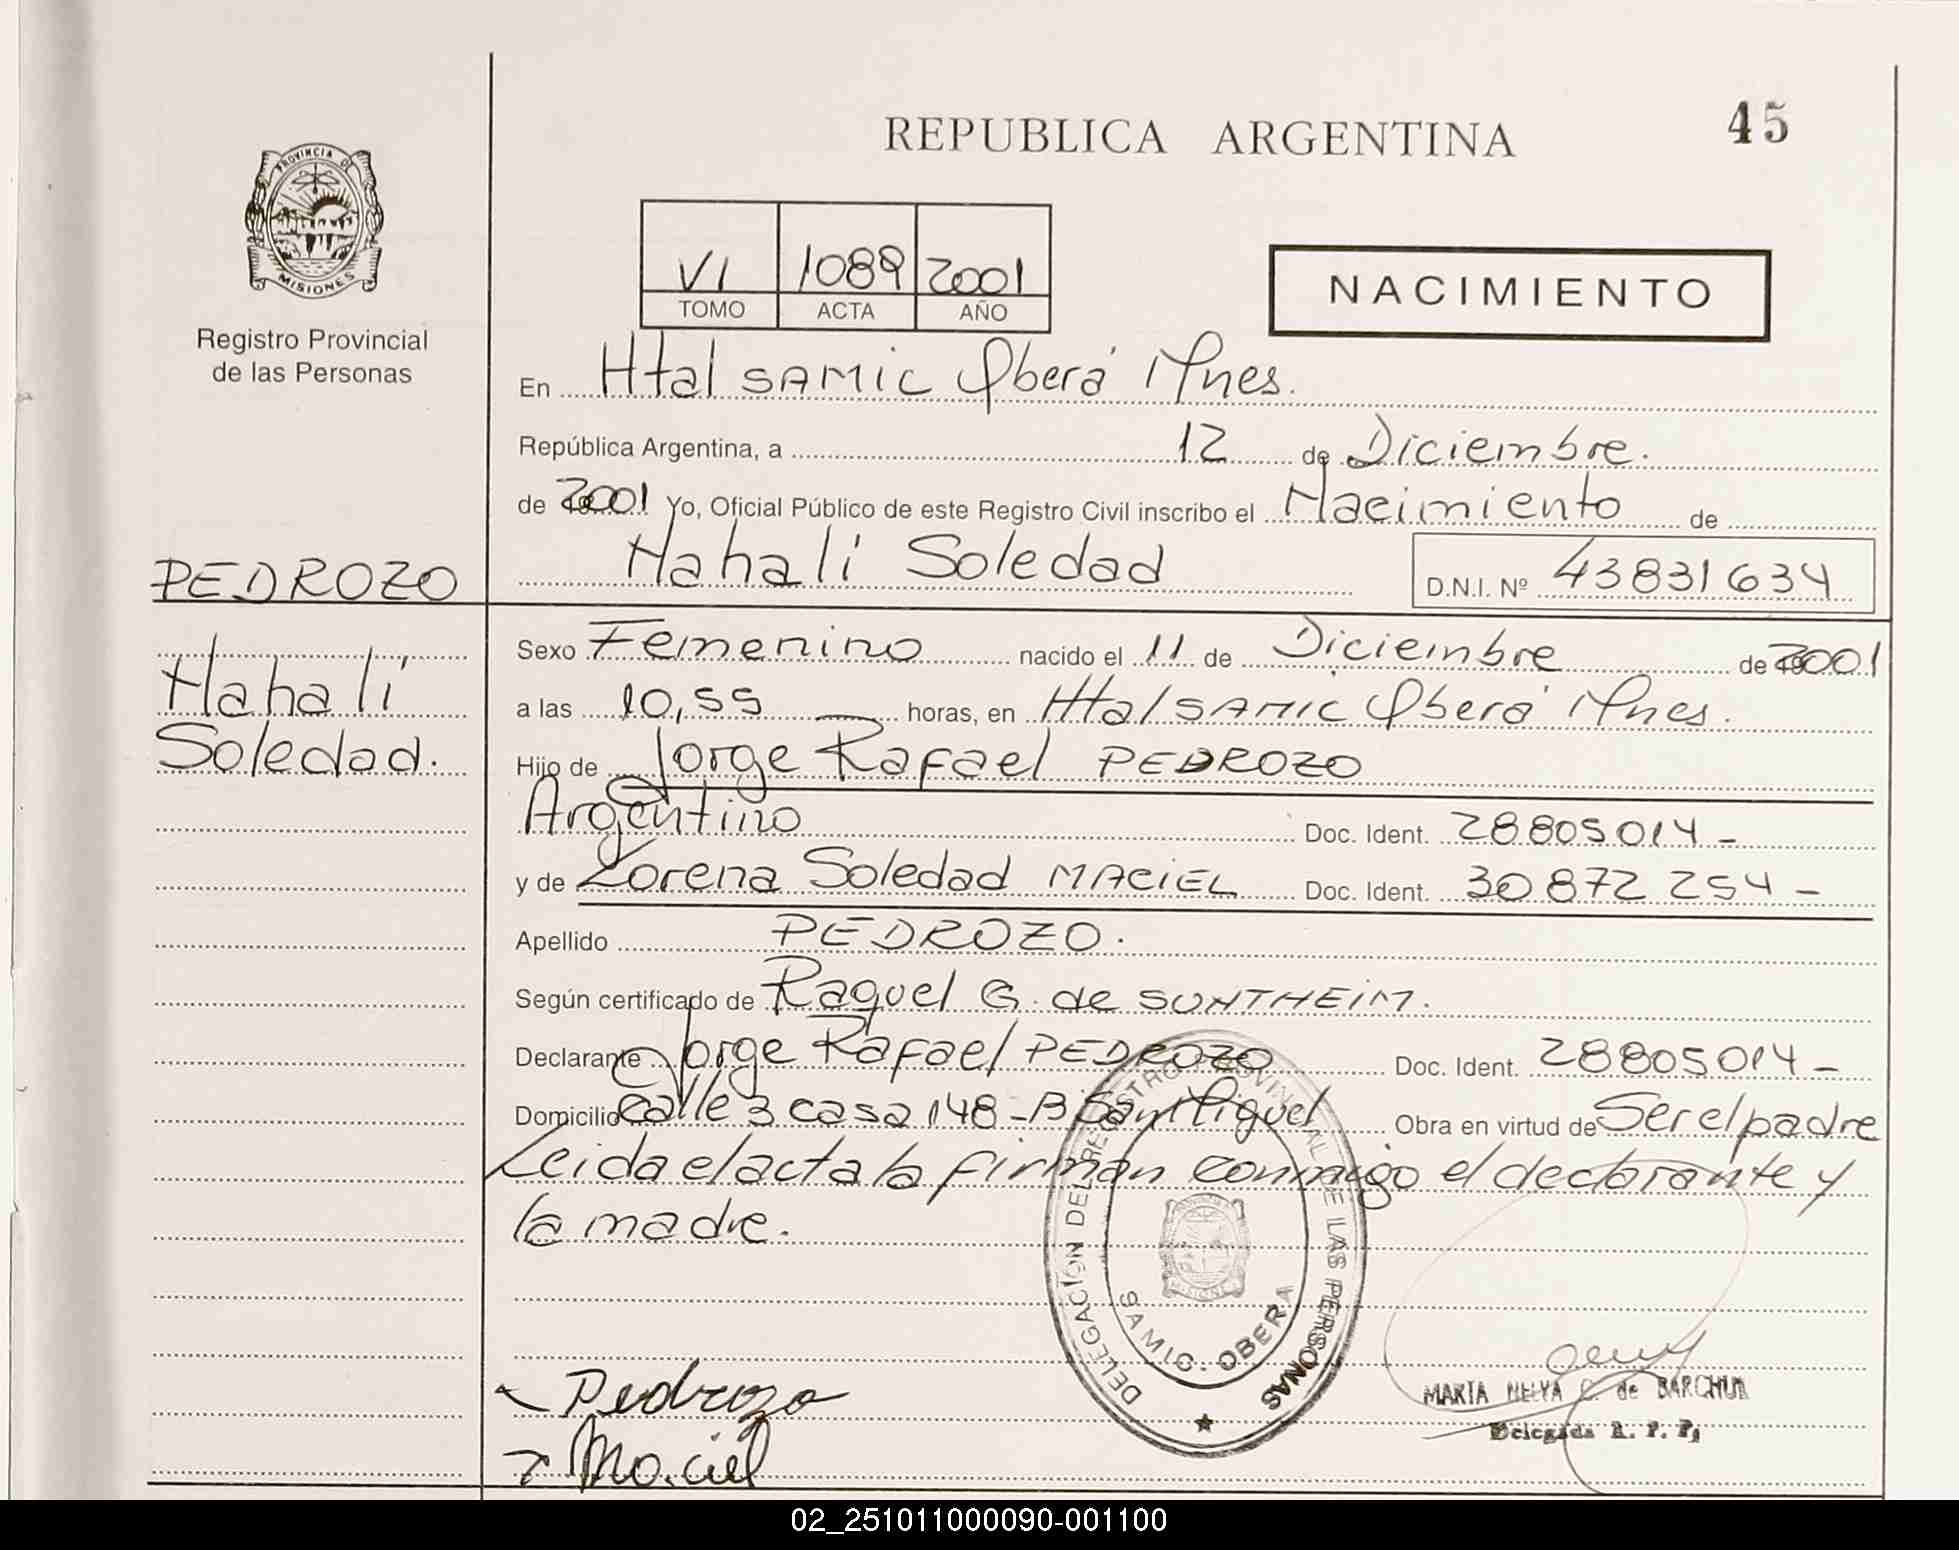 REPUBLICA ARGENTINA
45
PROVINCIA DE
MISIONES
Registro Provincial
de las Personas
VI 1089 2001
TOMO ACTA AÑO
NACIMIENTO
En Htal SAMIC Oberá Mnes.
República Argentina, a 12 de Diciembre.
de 2001 Yo, Oficial Público de este Registro Civil inscribo el Nacimiento de
Nahali Soledad D.N.I. Nº 43831634
PEDROZO
Nahali
Soledad.
Sexo Femenino nacido el 11 de Diciembre de 2001
a las 10,55 horas, en Htal SAMIC Oberá Mnes.
Hijo de Jorge Rafael PEDROZO
Argentino Doc. Ident. 28805014-
y de Lorena Soledad MACIEL Doc. Ident. 30872254-
Apellido PEDROZO.
Según certificado de Raquel G. de SUNTHEIM.
Declarante Jorge Rafael PEDROZO Doc. Ident. 28805014-
Domicilio Calle 3 casa 148-B San Miguel Obra en virtud de Ser el padre
Leida el acta la firman conmigo el declarante y
la madre.
DELEGACIÓN DEL REGISTRO PROVINCIAL DE LAS PERSONAS
SAMIC - OBERA
Pedrozo
Maciel
MARIA NELYA C. de BARCHUK
Delegada R. P. P.
02_251011000090-001100